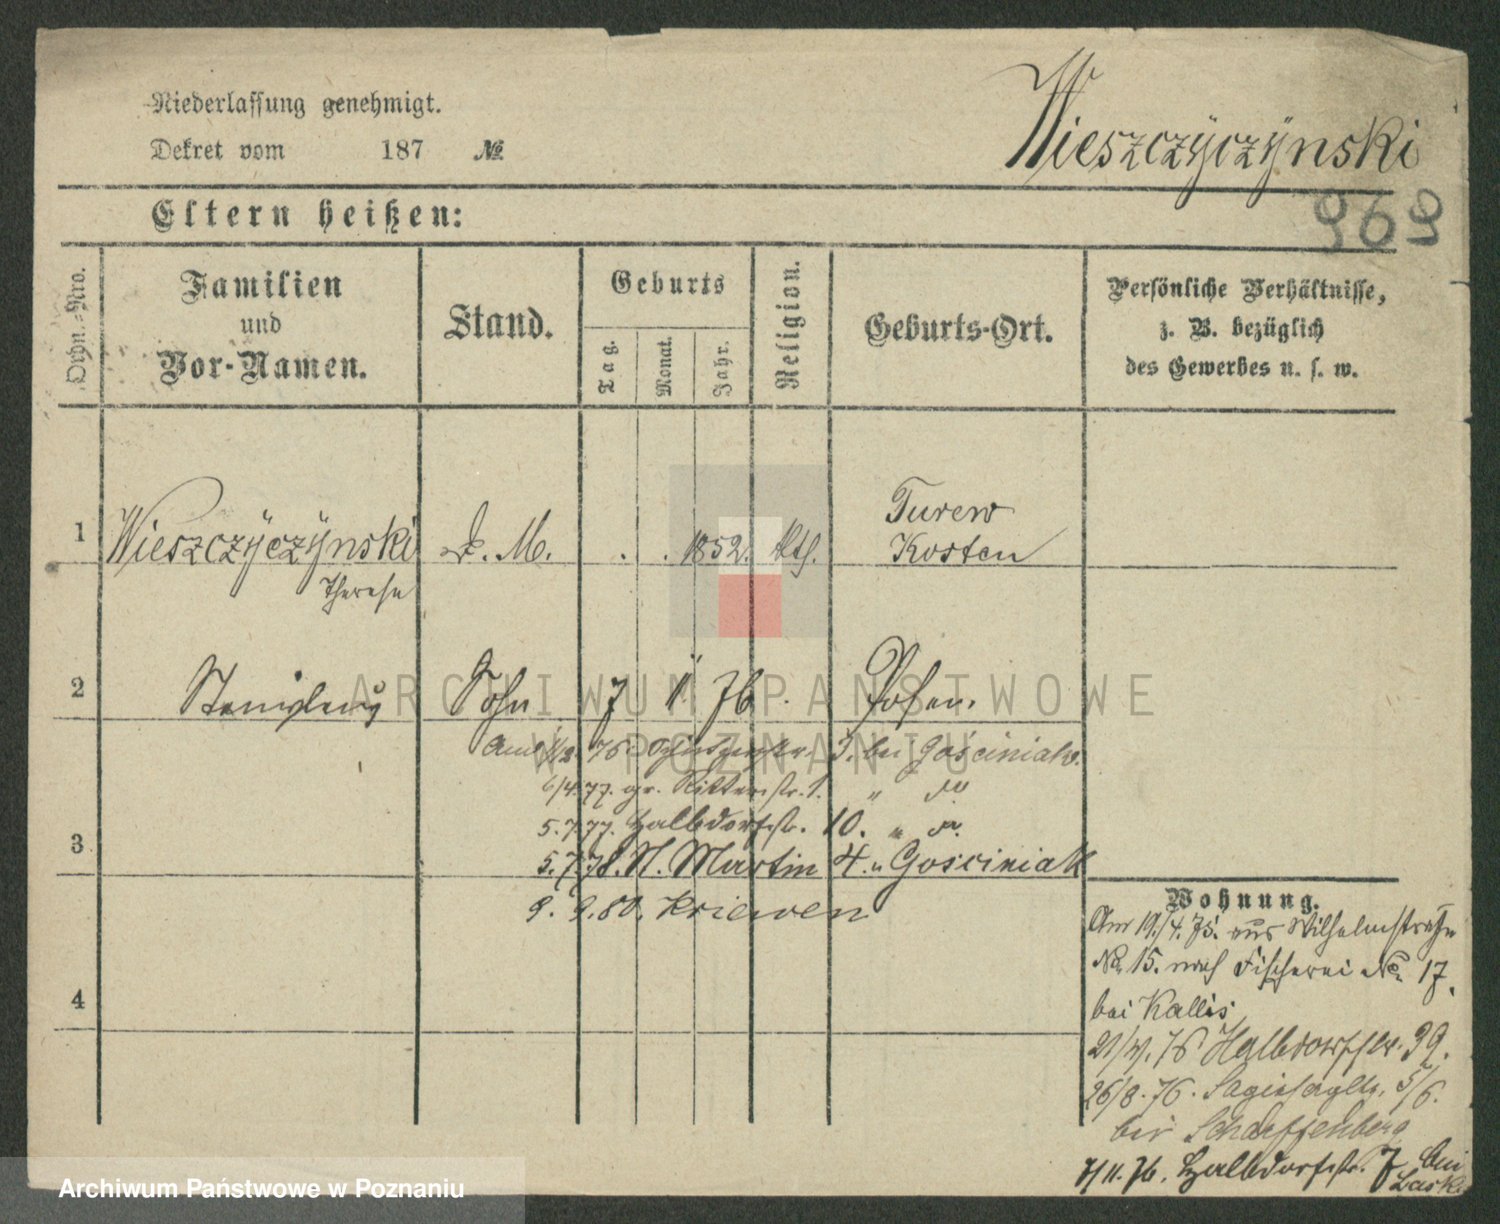 Niederlassung genehmigt.
Dekret vom 187 №
Wieszczÿczÿnski
969
Eltern heißen:
Ordn.-Nro.
Familien
und
Vor-Namen.
Stand.
Geburts
Tag.
Monat.
Jahr.
Religion.
Geburts-Ort.
Persönliche Verhältnisse,
z. B. bezüglich
des Gewerbes u. s. w.
1 Wieszczÿczÿnski D. M. . . 1852. Kth. Turew
Kosten
Therese
2 Stanislaus Sohn 7 11 76. Posen.
76. 3. bei Gościniak.
6/4.77. gr. Ritterstr. 1. " do
5.7.77. Halbdorfstr. 10. " do
3
5.7.78. St. Martin 4. " Gosciniak
9. 9.80. Kriewen
4
Wohnung.
Am 19./4.75. aus Wilhelmstraße
No. 15. nach Fischerei No. 17.
bei Kallis
21/4.76 Halbdorfstr. 39.
26/8.76. 5/6.
bei Scharffenberg
7/11.76. Halbdorfstr. 7. bei
Laski
ARCHIWUM PAŃSTWOWE
W POZNANIU
Archiwum Państwowe w Poznaniu